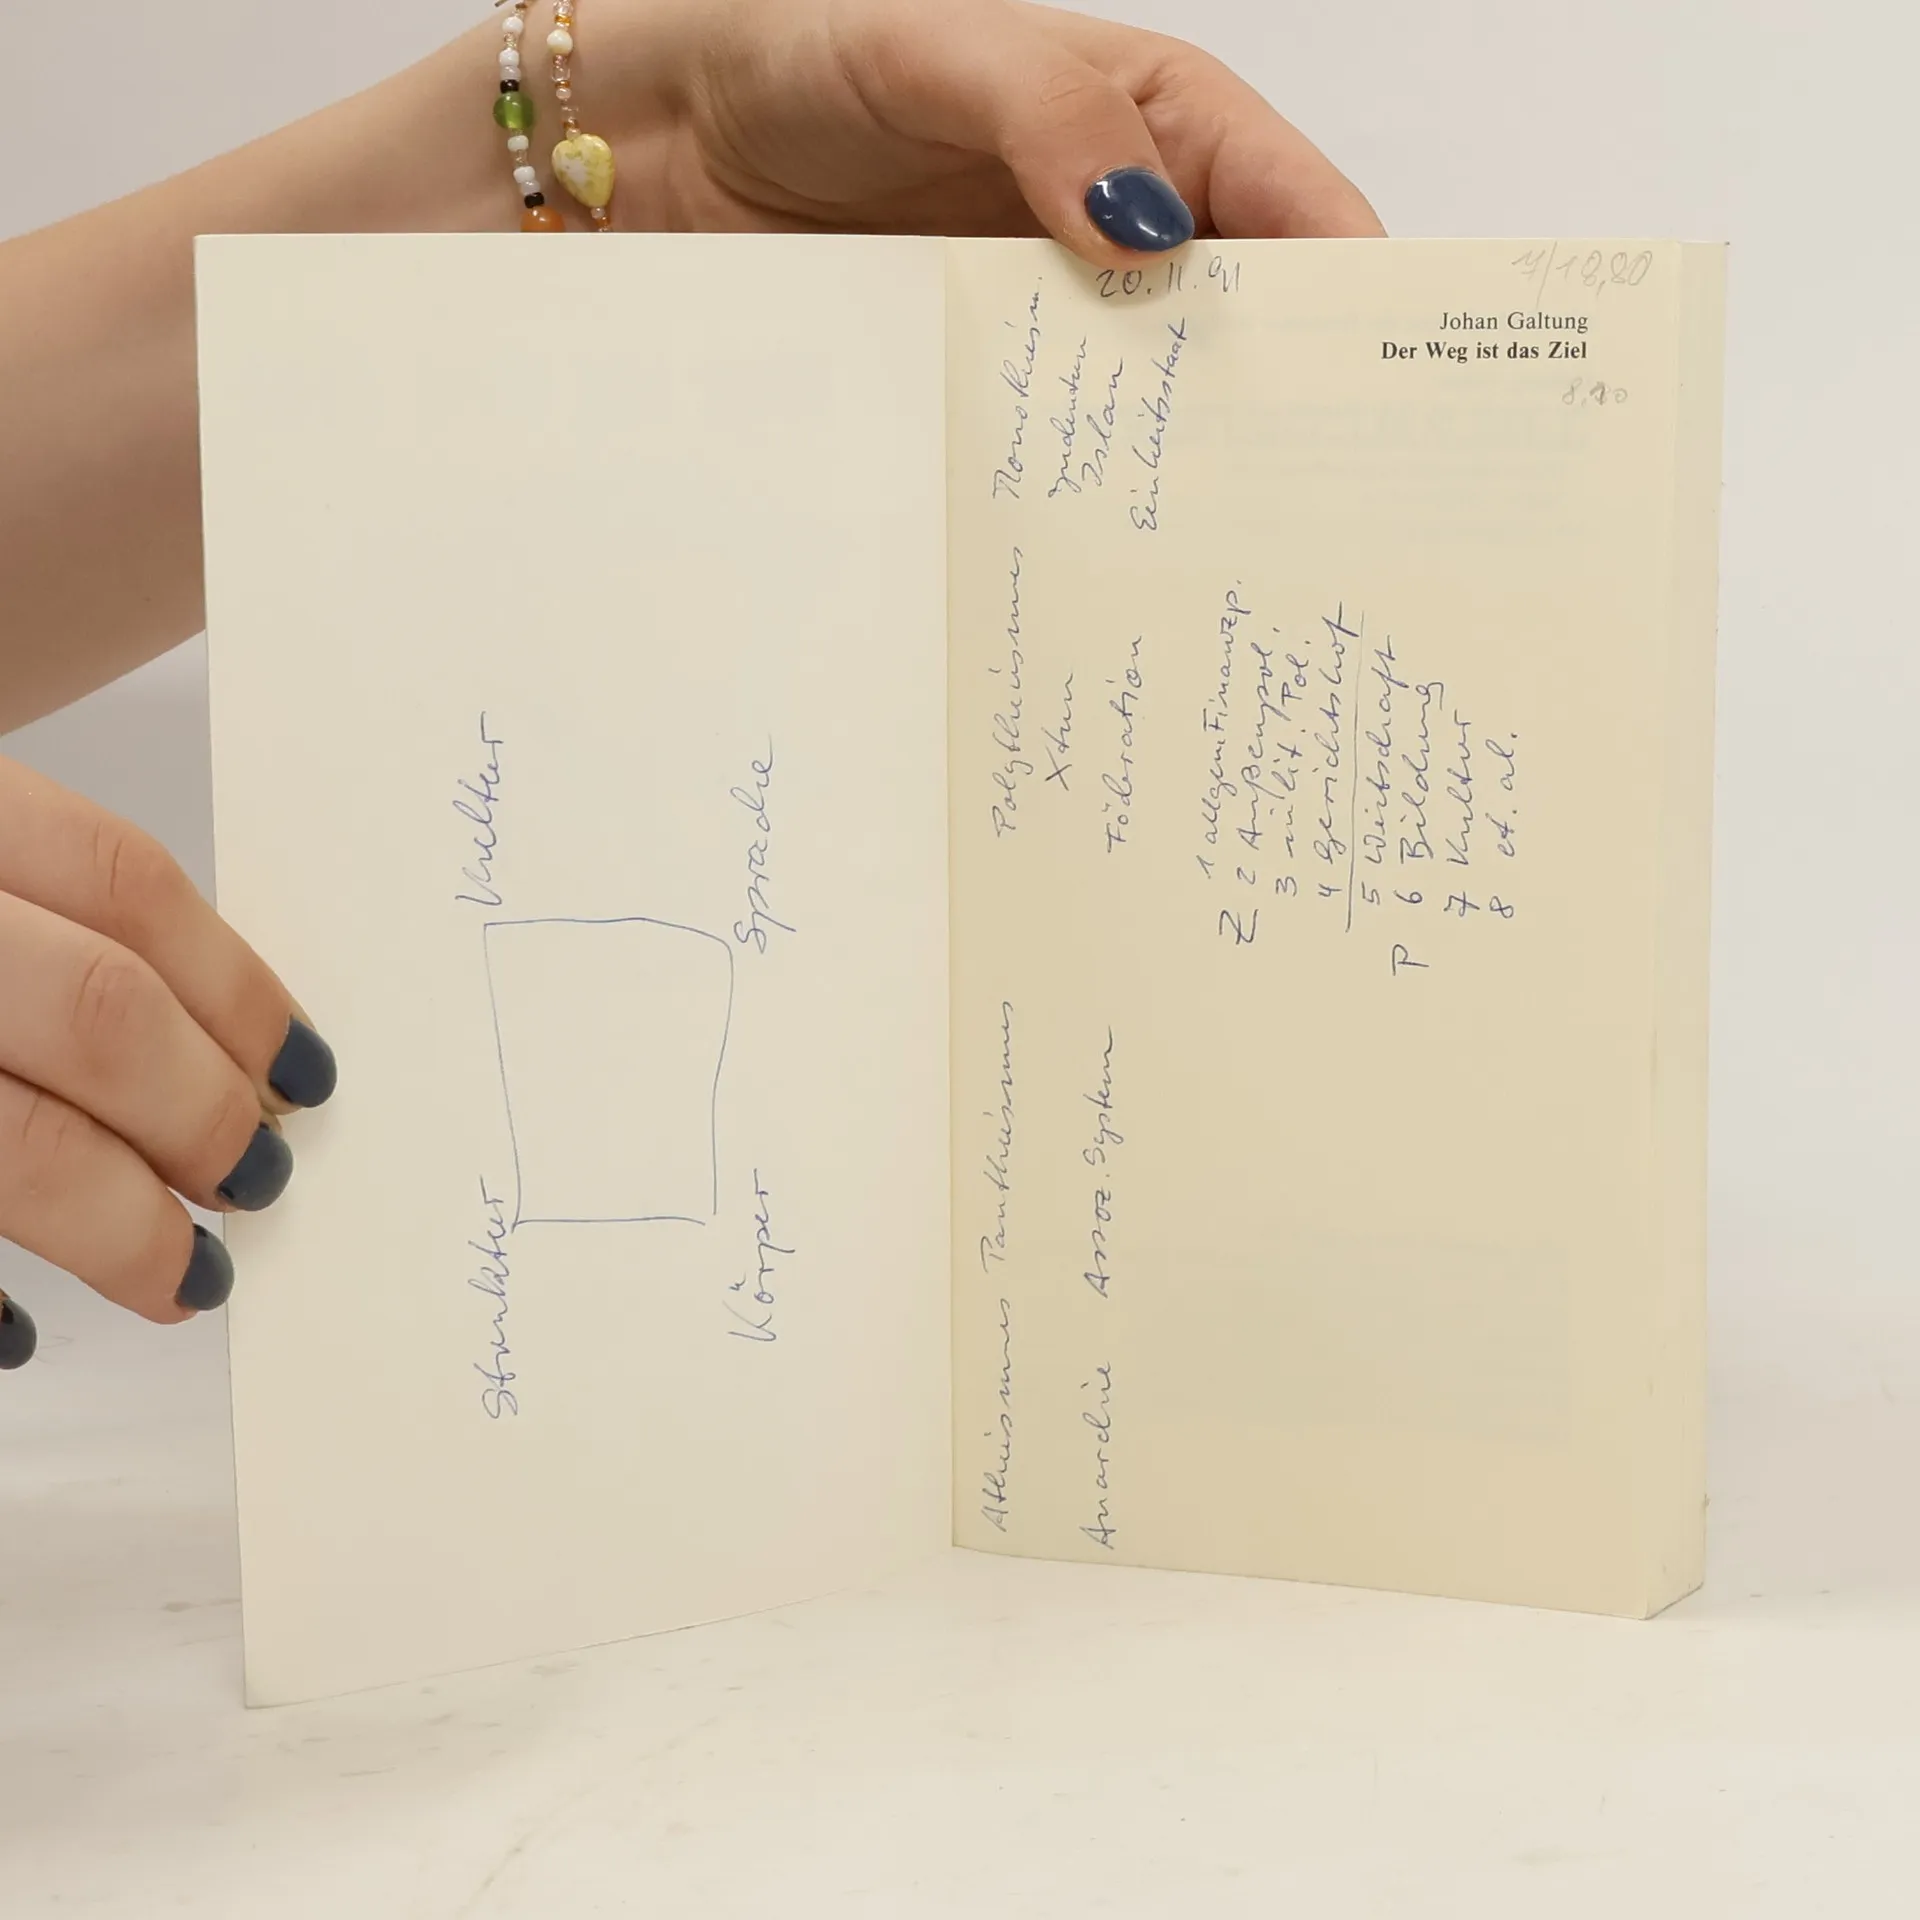 Struktur Kultur
Körper Sprache
20.11.91
8,20
Johan Galtung
Der Weg ist das Ziel
Atheismus Pantheismus Polytheismus Monotheism.
Xtum Judentum
Islam
Anarchie Assoz. System Föderation Einheitsstaat
Z 1 allgem. Finanzp.
2 Außenpol.
3 milit. Pol.
4 Gerichtshof
P 5 Wirtschaft
6 Bildung
7 Kultur
8 et. al.